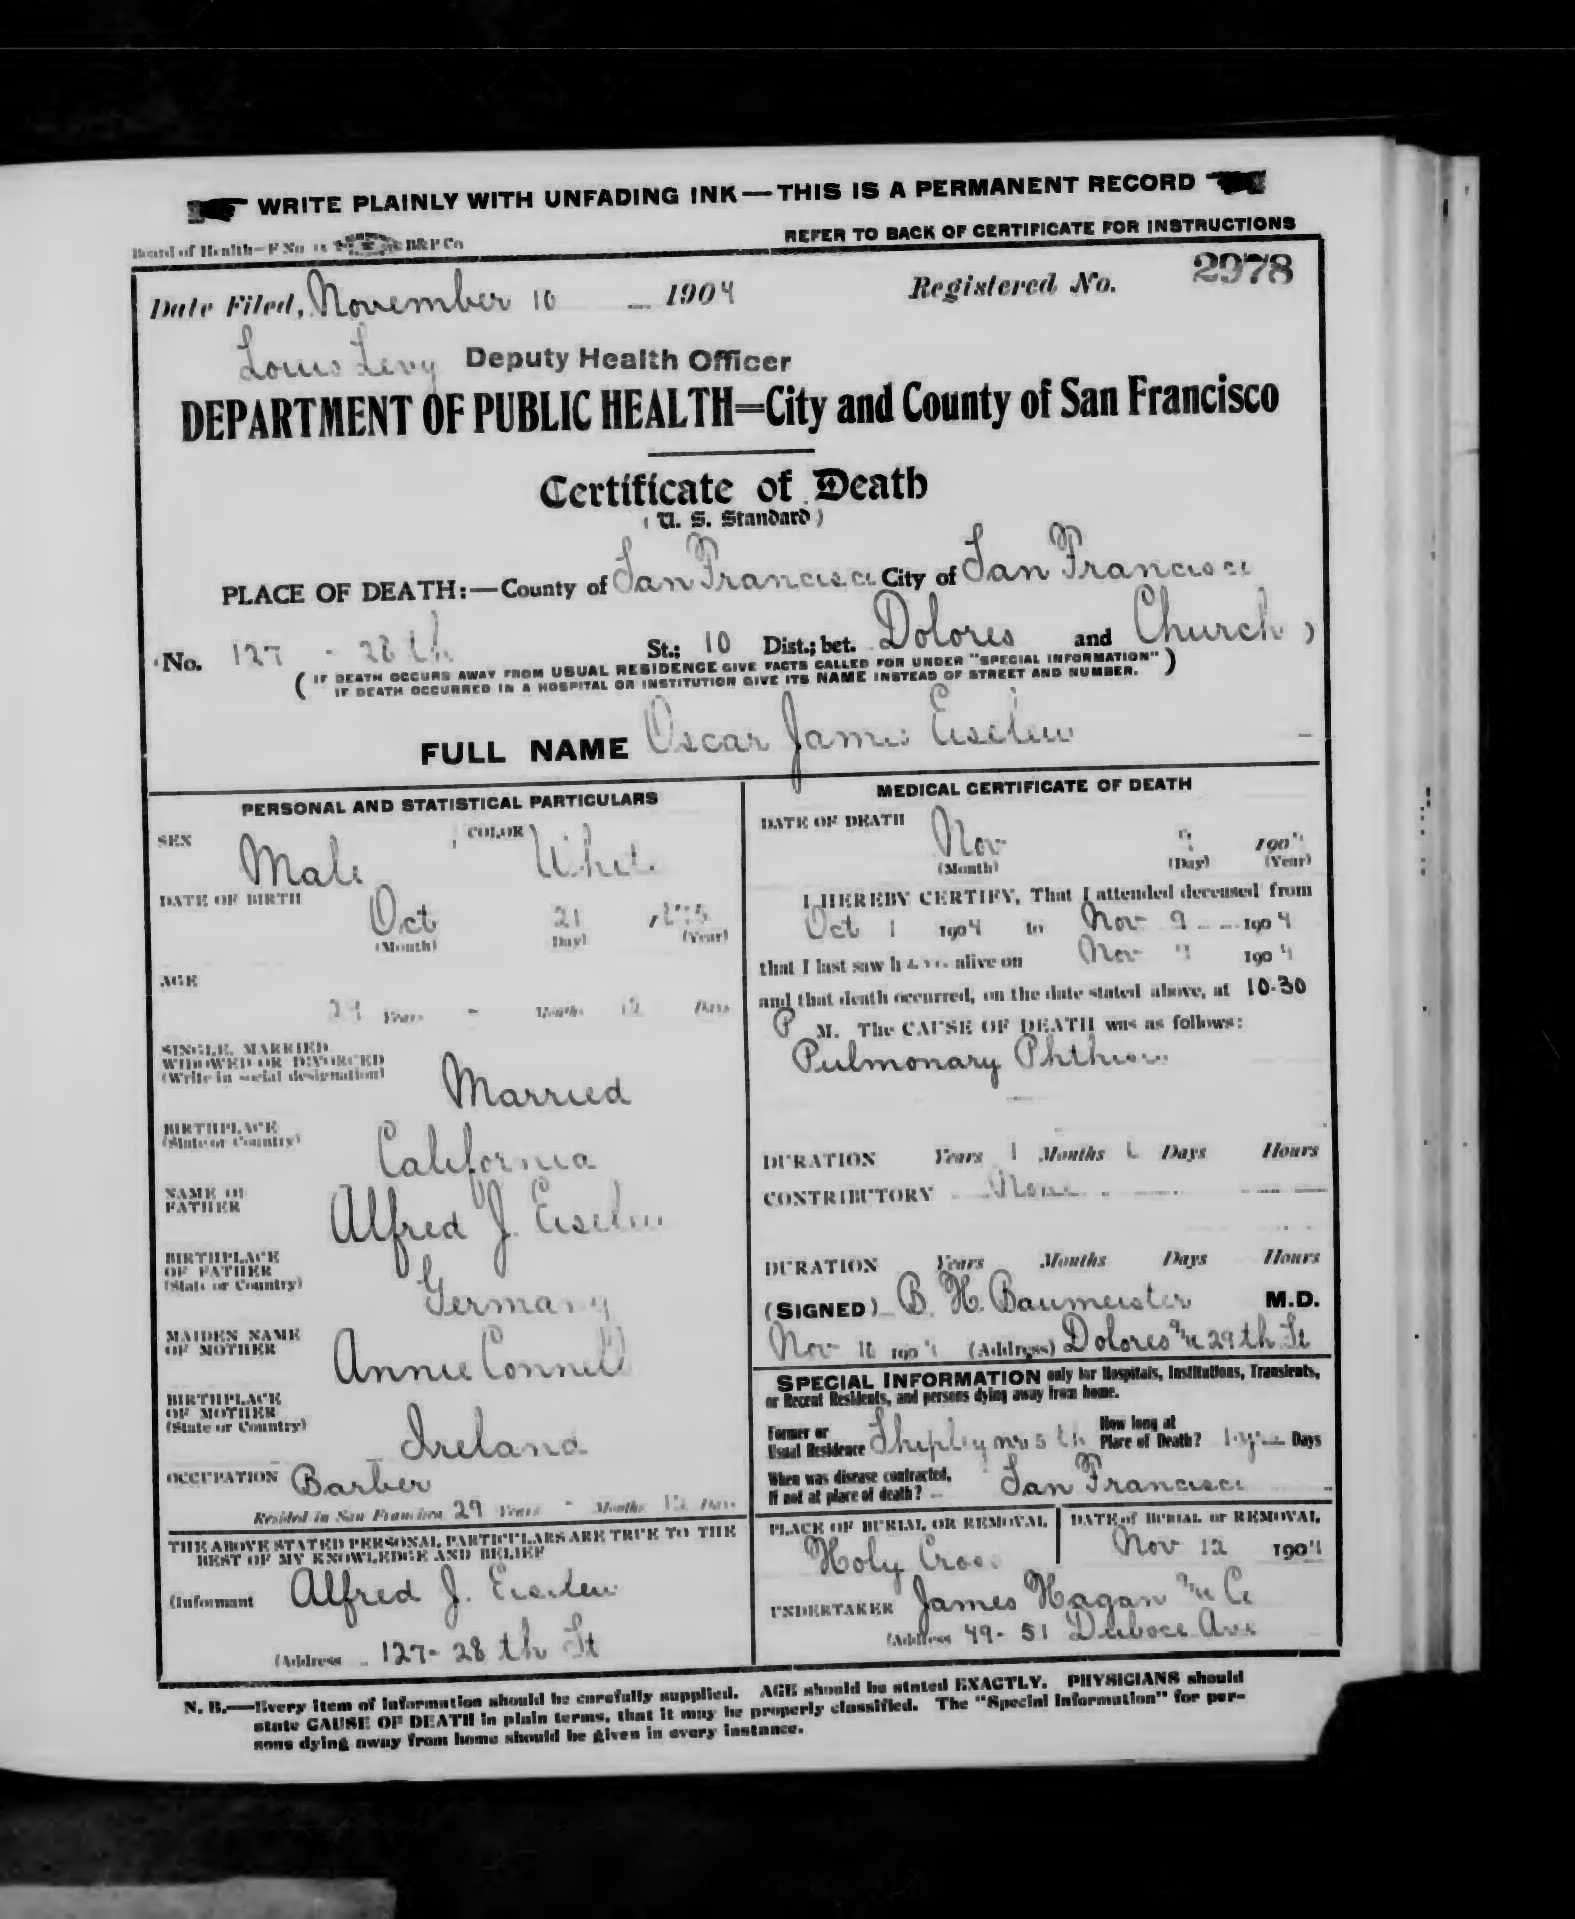 WRITE PLAINLY WITH UNFADING INK—THIS IS A PERMANENT RECORD
Board of Health—F No B&P Co
REFER TO BACK OF CERTIFICATE FOR INSTRUCTIONS
Date Filed, November 10 1904 Registered No. 2978
Louis Levy Deputy Health Officer
DEPARTMENT OF PUBLIC HEALTH=City and County of San Francisco
Certificate of Death
(U. S. Standard)
PLACE OF DEATH:—County of San Francisco City of San Francisco
No. 127 - 28th St.; 10 Dist.; bet. Dolores and Church )
( IF DEATH OCCURS AWAY FROM USUAL RESIDENCE GIVE FACTS CALLED FOR UNDER "SPECIAL INFORMATION" )
IF DEATH OCCURRED IN A HOSPITAL OR INSTITUTION GIVE ITS NAME INSTEAD OF STREET AND NUMBER.
FULL NAME Oscar James Eiselen
PERSONAL AND STATISTICAL PARTICULARS
SEX Male COLOR White
DATE OF BIRTH Oct 21 1875
(Month) (Day) (Year)
AGE
29 Years - Months 12 Days
SINGLE, MARRIED,
WIDOWED OR DIVORCED
(Write in social designation) Married
BIRTHPLACE
(State or Country) California
NAME OF
FATHER Alfred J. Eiselen
BIRTHPLACE
OF FATHER
(State or Country) Germany
MAIDEN NAME
OF MOTHER Annie Connell
BIRTHPLACE
OF MOTHER
(State or Country) Ireland
OCCUPATION Barber
Resided in San Francisco 29 Years - Months 12 Days
THE ABOVE STATED PERSONAL PARTICULARS ARE TRUE TO THE
BEST OF MY KNOWLEDGE AND BELIEF
(Informant Alfred J. Eiselen
(Address 127- 28th St
MEDICAL CERTIFICATE OF DEATH
DATE OF DEATH Nov 9 1904
(Month) (Day) (Year)
I HEREBY CERTIFY, That I attended deceased from
Oct 1 1904 to Nov 9 1904
that I last saw him alive on Nov 9 1904
and that death occurred, on the date stated above, at 10-30
P M. The CAUSE OF DEATH was as follows:
Pulmonary Phthisis
DURATION Years 1 Months Days Hours
CONTRIBUTORY None
DURATION Years Months Days Hours
(SIGNED) B. H. Baumeister M.D.
Nov 10 1904 (Address) Dolores & 29th St
SPECIAL INFORMATION only for Hospitals, Institutions, Transients,
or Recent Residents, and persons dying away from home.
Former or
Usual Residence Shipley nr 5th How long at
Place of Death? Days
When was disease contracted,
If not at place of death? San Francisco
PLACE OF BURIAL OR REMOVAL Holy Cross
DATE of BURIAL or REMOVAL Nov 12 1904
UNDERTAKER James Hagan & Co
(Address 49- 51 Duboce Ave
N. B.—Every item of information should be carefully supplied. AGE should be stated EXACTLY. PHYSICIANS should
state CAUSE OF DEATH in plain terms, that it may be properly classified. The "Special Information" for per-
sons dying away from home should be given in every instance.